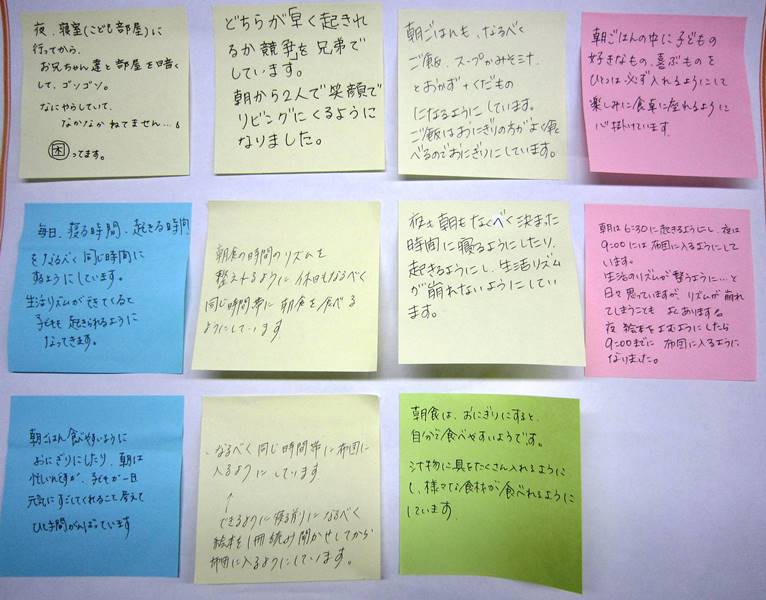 夜、寝室(こども部屋)に
行ってから、
お兄ちゃん達と部屋を暗く
して、ゴソゴソ。
なにやらしていて、
なかなかねてません…。
困ってます。
どちらが「早く起きれ
るか競争」を兄弟で
しています。
朝から2人で笑顔で
リビングにくるように
なりました。
朝ごはんも、なるべく
ご飯、スープかみそ汁、
とおかず+くだもの
になるようにしています。
ご飯はおにぎりの方がよく食
べるのでおにぎりにしています。
朝ごはんの中に子どもの
好きなもの、喜ぶものを
ひとつは必ず入れるようにして
楽しみに食卓に座れるように
心掛けています。
毎日、寝る時間、起きる時間
をなるべく同じ時間に
するようにしています。
生活リズムができてくると
子どもも起きられるように
なってきます。
朝食の時間のリズムを
整えれるように休日もなるべく
同じ時間帯に朝食を食べる
ようにしています
夜も朝もなるべく決まった
時間に寝るようにしたり、
起きるようにし、生活リズム
が崩れないようにしてい
ます。
朝は6:30に起きるようにし、夜は
9:00には布団に入るようにして
います。
生活のリズムが整うように…と
日々思っていますが、リズムが崩れ
てしまうことも よくあります。
夜 絵本をよむようにしたら
9:00までに布団に入るように
なりました。
朝ごはん食べやすいように
おにぎりにしたり、朝は
忙しいですが、子どもが一日
元気にすごしてくれること考えて
ひと手間がんばっています
・なるべく同じ時間帯に布団に
入るようにしています
↑
できるように寝る前になるべく
絵本を1冊読み聞かせしてから
布団に入るようにしています。
朝食は、おにぎりにすると、
自分で食べやすいようです。
汁物に具をたくさん入れるように
し、様々な食材が食べれるように
しています。